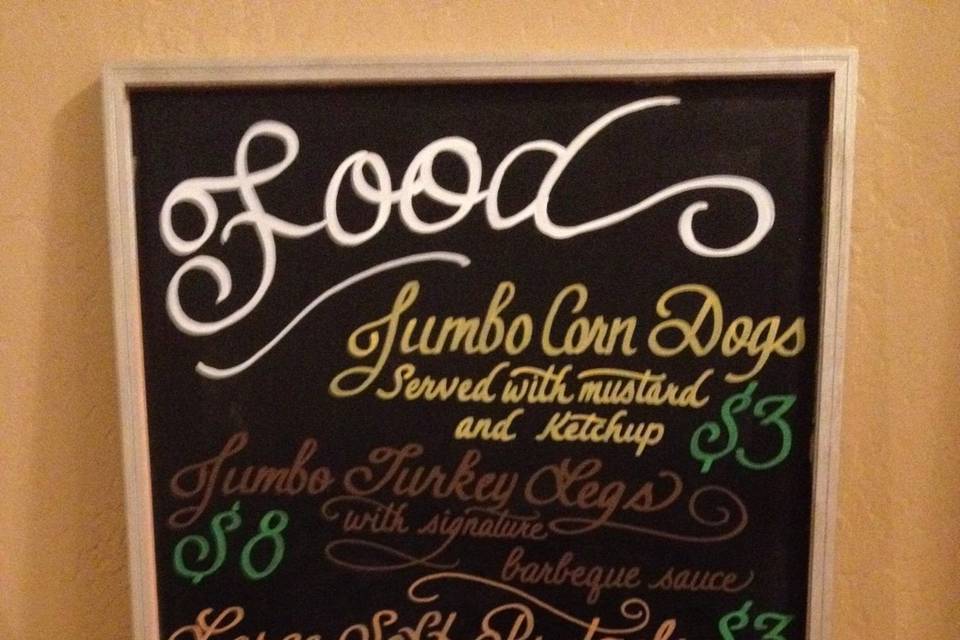 Food
Jumbo Corn Dogs
Served with mustard
and Ketchup $3
Jumbo Turkey Legs
$8 with signature
barbeque sauce
Large Soft Pretzels $3